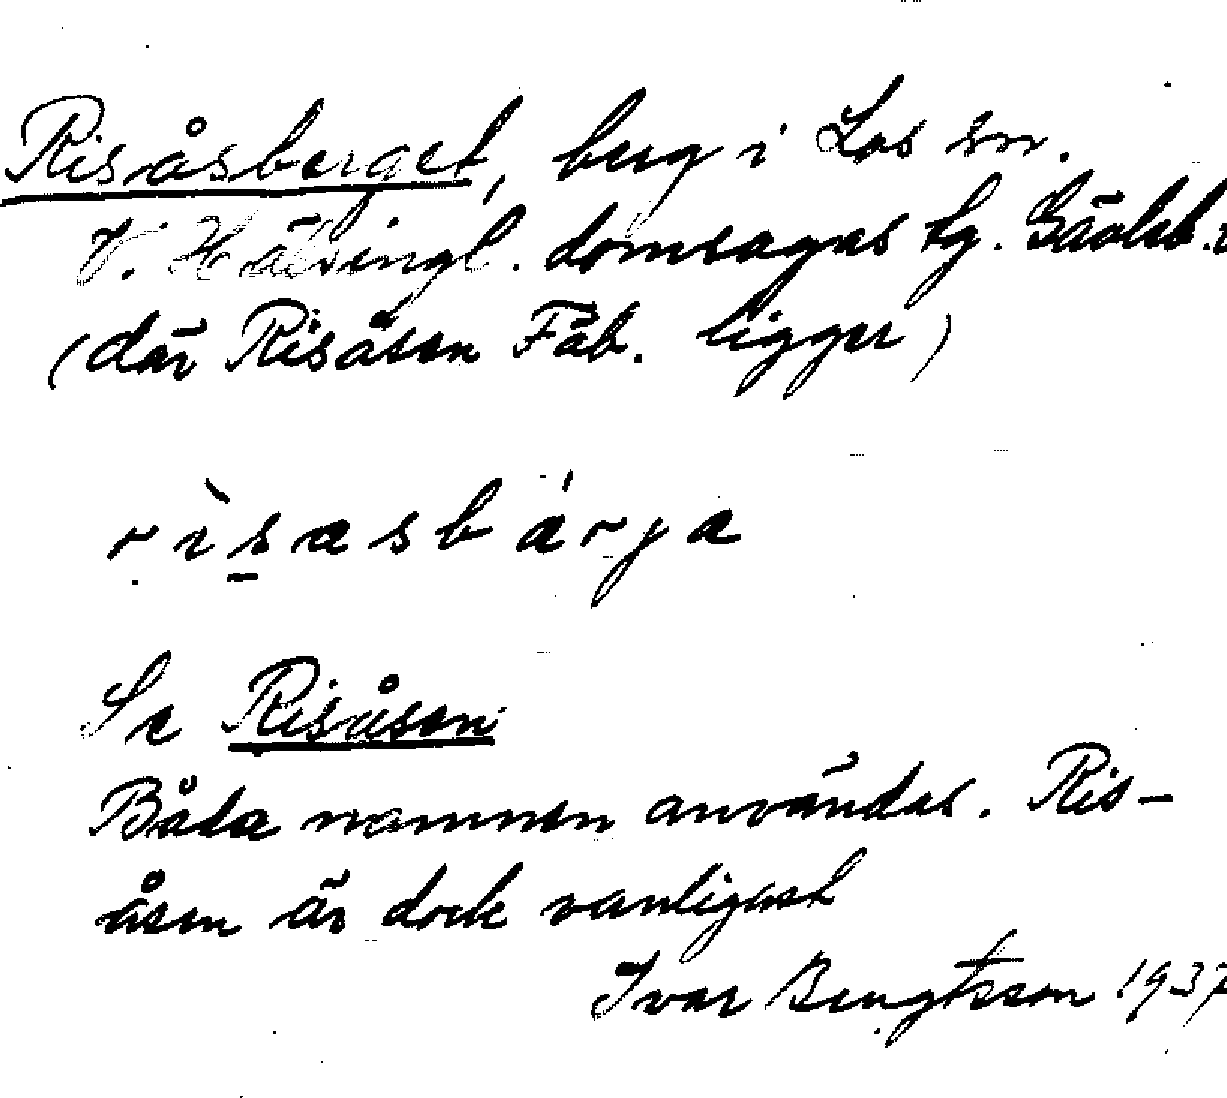 Risåsberget, berg i Los sn.
V. Hälsingl. domsagas tg. Gävleb. 
(där Risåsen Fäb. ligger)
rìsasbárja
Se Risåsen
Båda namnen användas. Ris-
åsen är dock vanligast
Ivar Bengtsson 1937